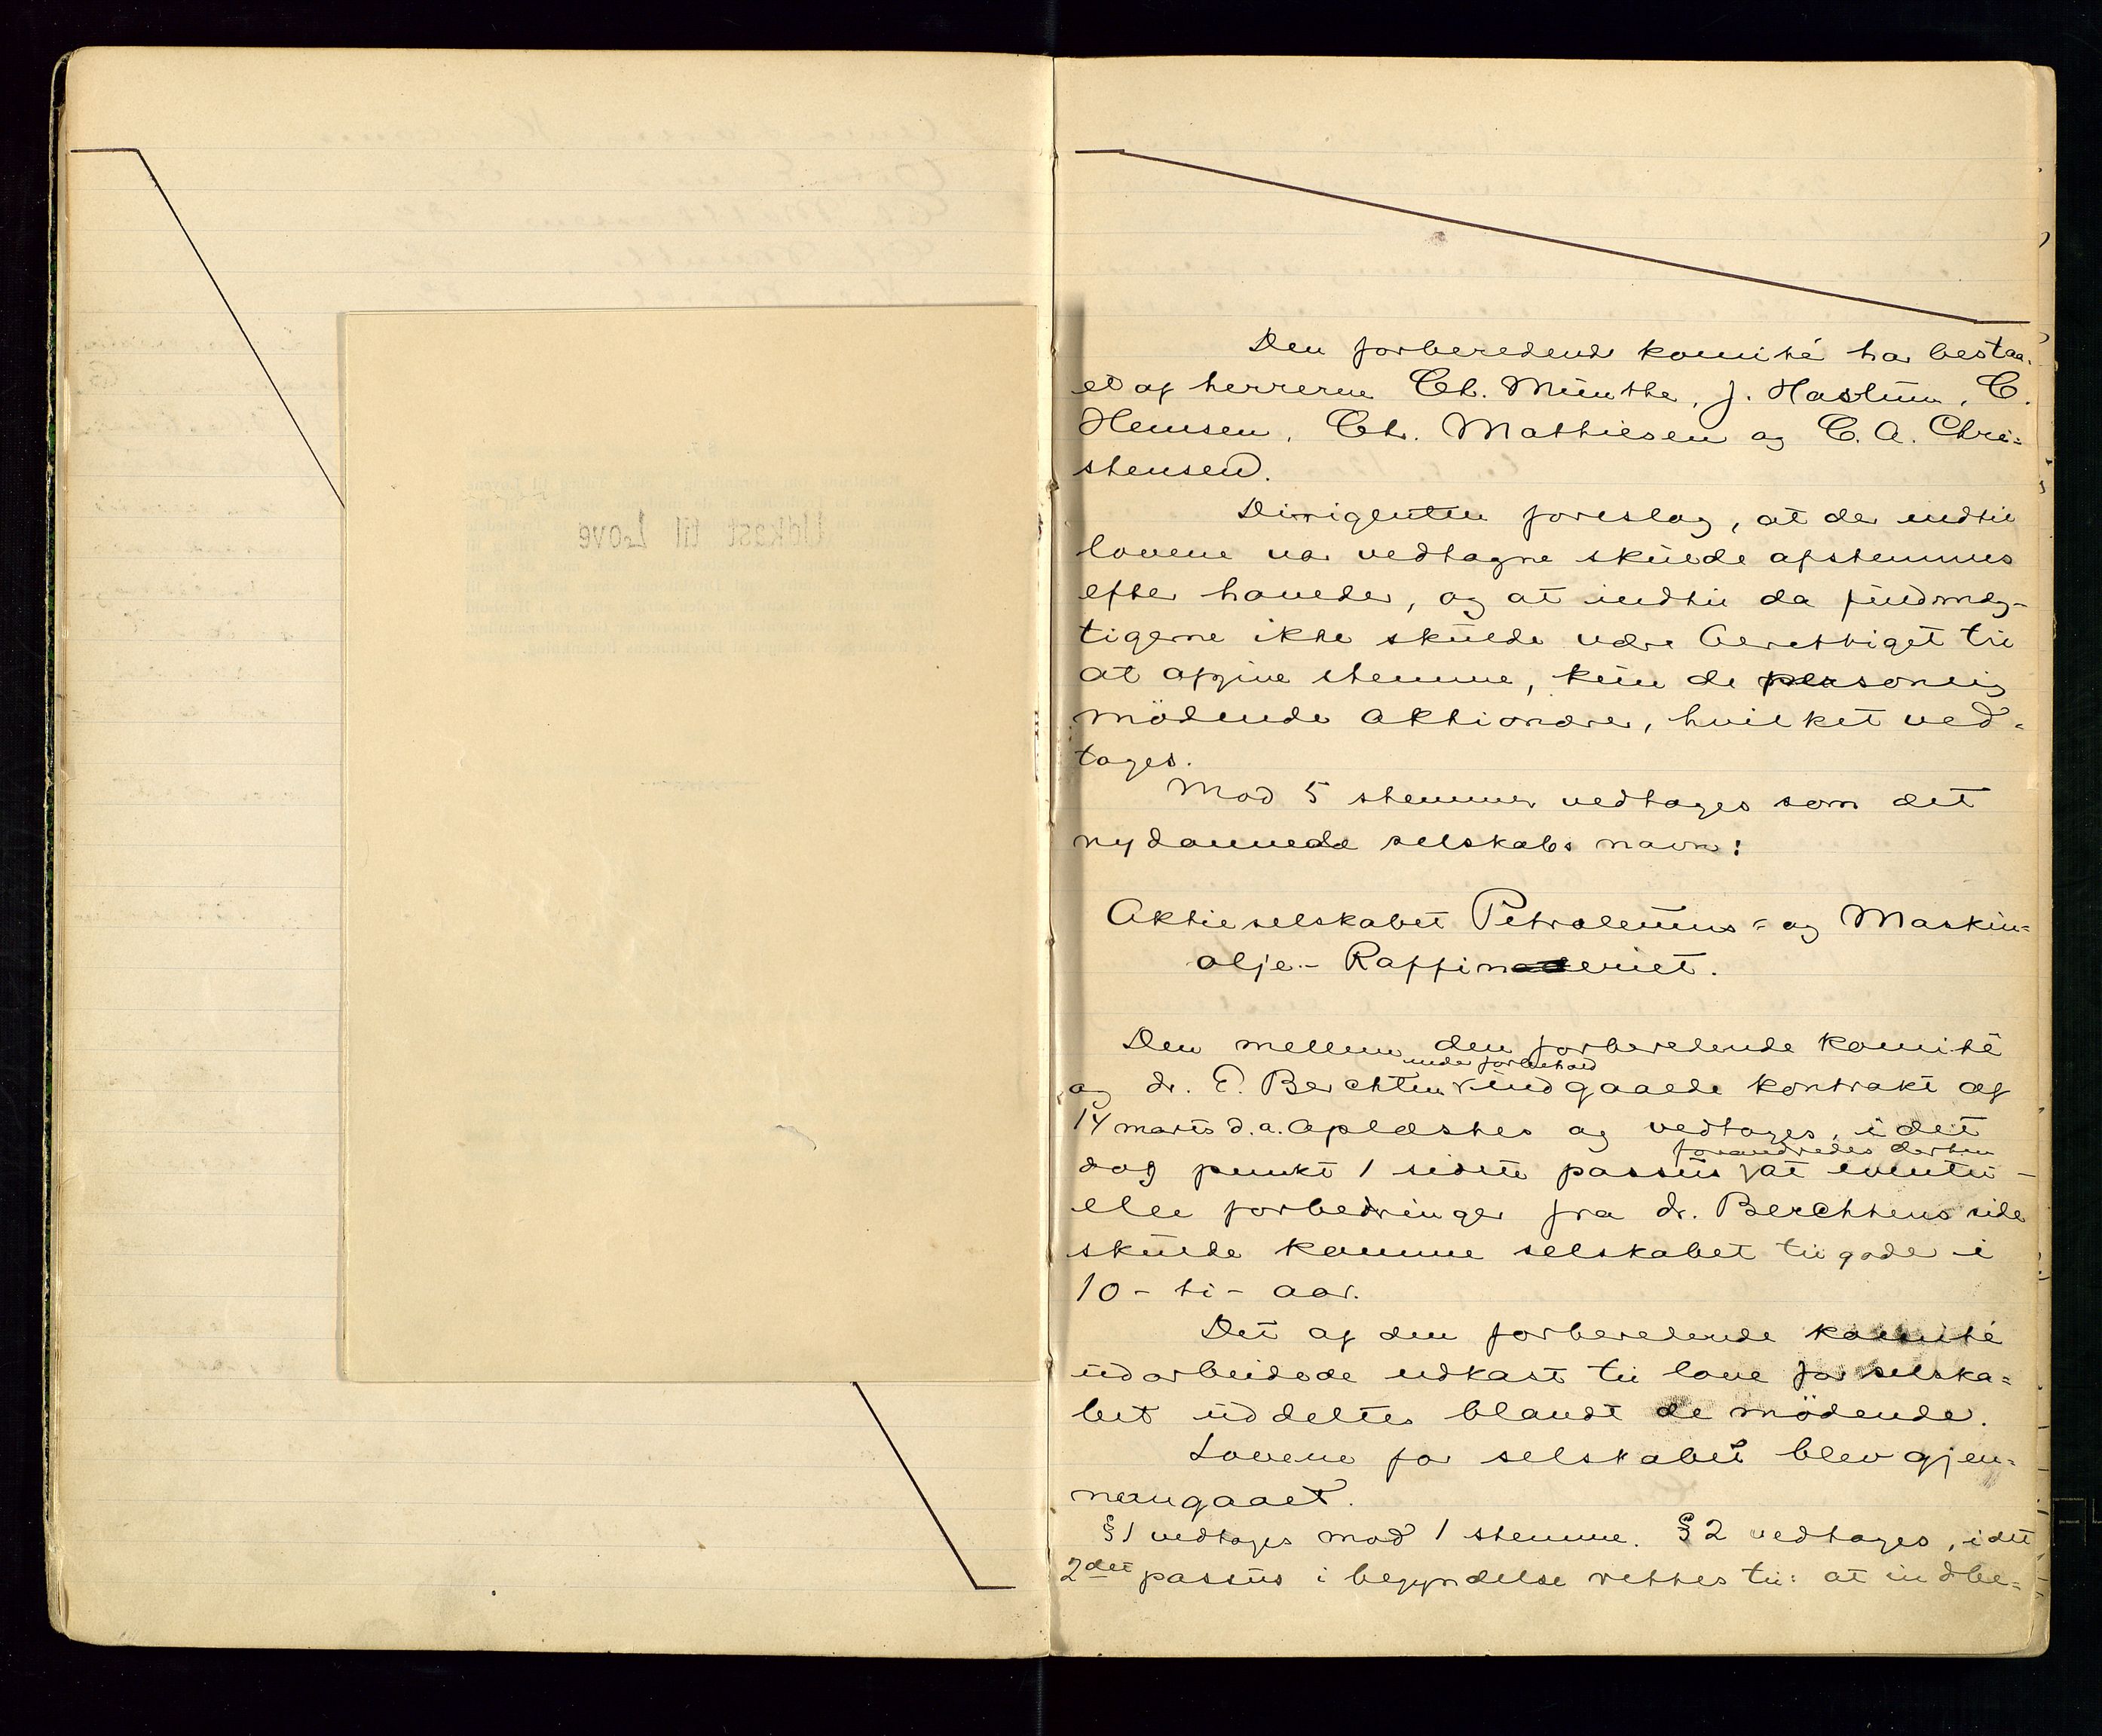 Udkast til Love
Den forberedende komité har bestaa-
et af herrerne Chr. Münthe, J. Haslum, C.
Hemsen, Chr. Mathiesen og C. A. Chri-
stensen.
Dirigenten foreslog, at der indtil
lovene var vedtagne skulde afstemmes
efter hoveder, og at indtil da fuldmæg-
tigerne ikke skulde være berettiget til
at afgive stemme, kun de personlig
mödende aktionærer, hvilket ved-
tages.
Mod 5 stemmer vedtages som det
nydannede selskabs navn:
Aktieselskabet Petroleums- og Maskin-
olje- Raffineriet.
Den mellem den forberedende komité
under forbehold
og dr. E. Berchten indgaaede kontrakt af
14 marts d.a. oplæstes og vedtages, idet
forandredes derhen
dog punkt 1 sidste passus at eventu-
elle forbedringer fra dr. Berchtens side
skulde komme selskabet tilgode i
10 - ti - aar.
Det af den forberedende komité
udarbeidede udkast til love for selska-
bet uddeltes blandt de mödende.
Lovene for selskabet blev gjen-
nemgaaet.
§ 1 vedtages mod 1 stemme. § 2 vedtages, idet
2det passus i begyndelse rettes til: at indbe-